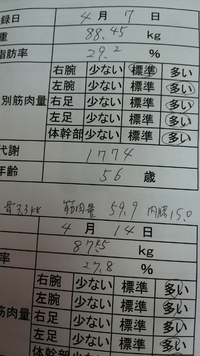 録日 4月 7日
重 88.45 kg
脂肪率 29.2 %
右腕 少ない 標準 多い
左腕 少ない 標準 多い
別筋肉量 右足 少ない 標準 多い
左足 少ない 標準 多い
体幹部 少ない 標準 多い
代謝 1774
年齢 56 歳
筋肉量 59.9 内臓 15.0
4月 14日
kg
率 27.8 %
右腕 少ない 標準 多い
左腕 少ない 標準 多い
筋肉量 右足 少ない 標準 多い
左足 少ない 標準 多い